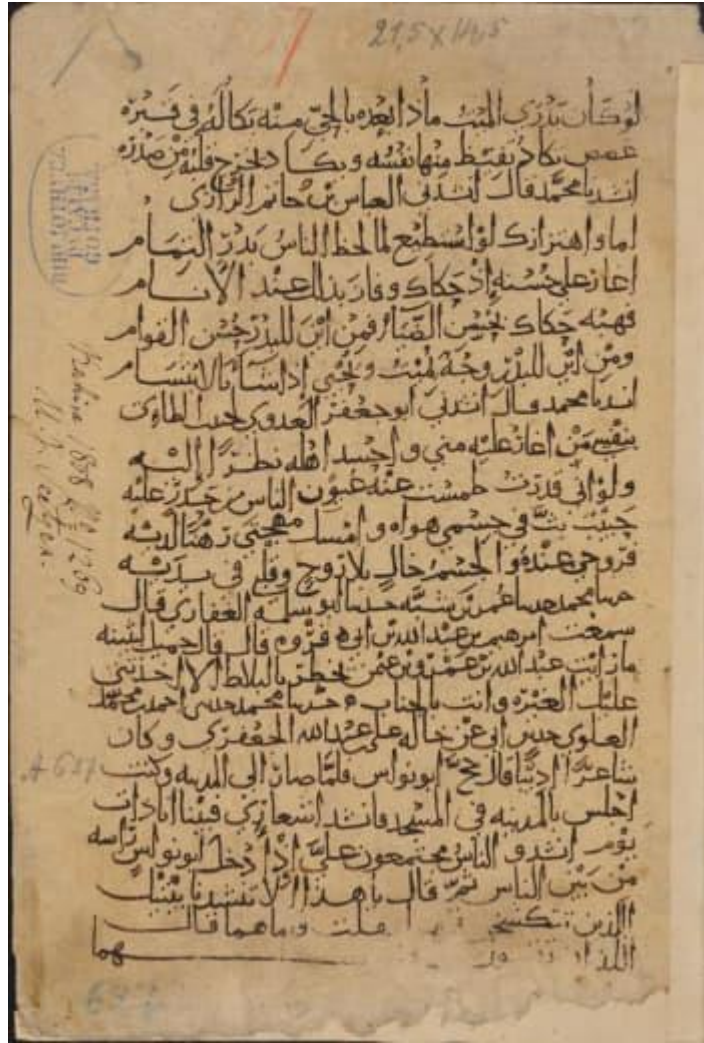 21,5 x 14,5
لو كان يدري الميت ماذا بعده بالحي منه بكا له في قبره
غصص يكاد تفيض منها نفسه ويكاد يخرج قلبه من صدره
انشدنا محمد قال انشدني العباس بن حاتم الرازي
اما واهتزازك لو استطيع لما لحظ الناس بدر التمام
اغار على حسنه إذ حكاك وفاز بذلك عند الأنام
فهبه حكاك بحسن الضياء فمن اين للبدر حسن القوام
ومن اين للبدر وجه يميت ويحيي إذا شاء بالابتسام
انشدنا محمد قال انشدني ابو جعفر العدوي لحبيب الطاءي
بنفسي من اغار عليه مني واحسد اهله نظرا إليه
ولو اني قدرت طمست عنه عيون الناس من حذر عليه
حبيب بث في جسمي هواه وامسك مهجتي رهنا لديه
فروحي عنده والجسم خال بلا روح وقلبي في يديه
حدثنا محمد حدثنا عمر بن شبه حدثنا ابو سلمه الغفاري قال
سمعت ابرهيم بن عبد الله بن ابي فروه قال قال جميل لبثينه
ما رايت عبد الله بن عمرو بن عثمن يخطر بالبلاط الا اخذتني
عليك الغيرة وانت بالجناب حدثنا محمد حدثني احمد بن محمد
العلوي حدثني ابي عن خاله علي بن عبد الله الجعفري وكان
شاعرا اديبا قال حج ابو نواس فلما صار الى المدينه وكنت
اجلس بالمدينه في المسجد فانشد اشعاري فبينا انا ذات
يوم انشد والناس مجتمعون علي إذ أدخل ابو نواس راسه
من بين الناس ثم قال يا هذا الا تنشدنا بيتيك
اللذين قلت وما هما قال
A 637
637